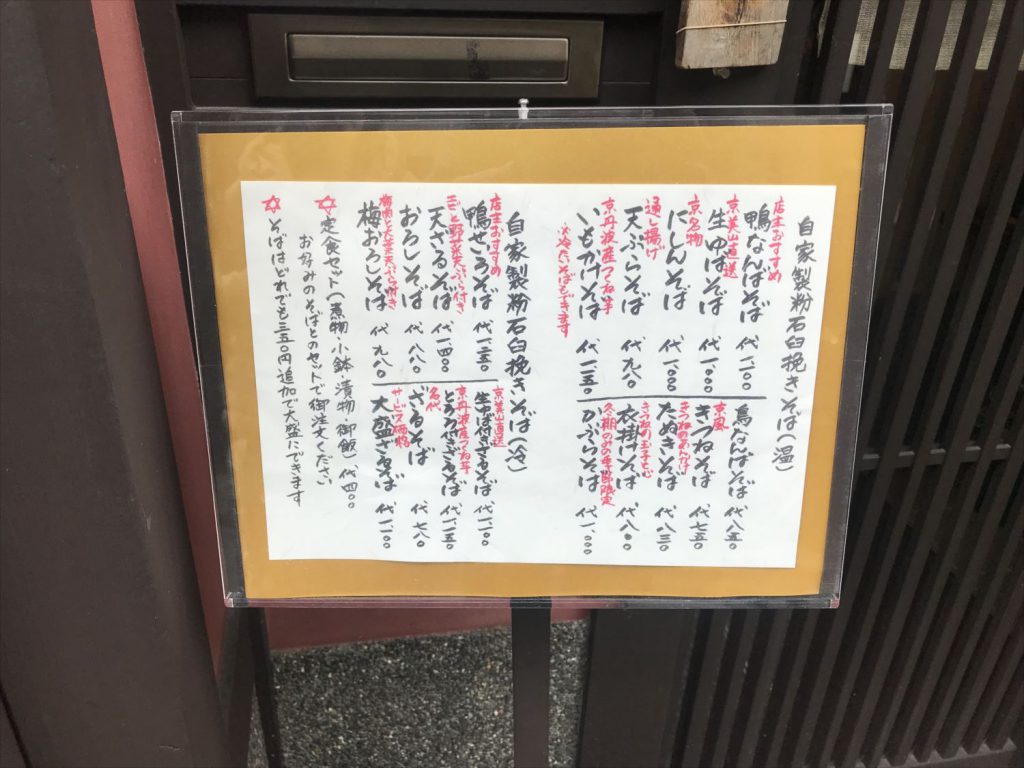 自家製粉石臼挽きそば(温)
店主おすすめ
鴨なんばそば 代一、二〇〇
京美山直送
生ゆばそば 代一、〇〇〇
京名物
にしんそば 代一、〇〇〇
通し揚げ
天ぷらそば 代九八〇
京丹波産つね芋
いもかけそば 代一、一五〇
※冷たいそばもできます
鳥なんばそば 代八五〇
京風
きつねそば 代七五〇
たぬきそば 代八三〇
衣掛けそば 代八〇〇
冬期のみの季節限定
かぶらそば 代一、一〇〇
自家製粉石臼挽きそば(冷)
店主おすすめ
鴨せいろそば 代一、二五〇
天ざるそば 代一、四〇〇
おろしそば 代八八〇
梅おろしそば 代九八〇
京美山直送
生ゆば付ざるそば 代一、一〇〇
京丹波産つね芋
とろろ付ざるそば 代一、二五〇
名代
ざるそば 代七八〇
サービス価格
大盛ざるそば 代一、一〇〇
定食セット(煮物・小鉢・漬物・御飯)代四〇〇
お好みのそばとのセットで御注文ください
そばはどれでも三五〇円追加で大盛にできます